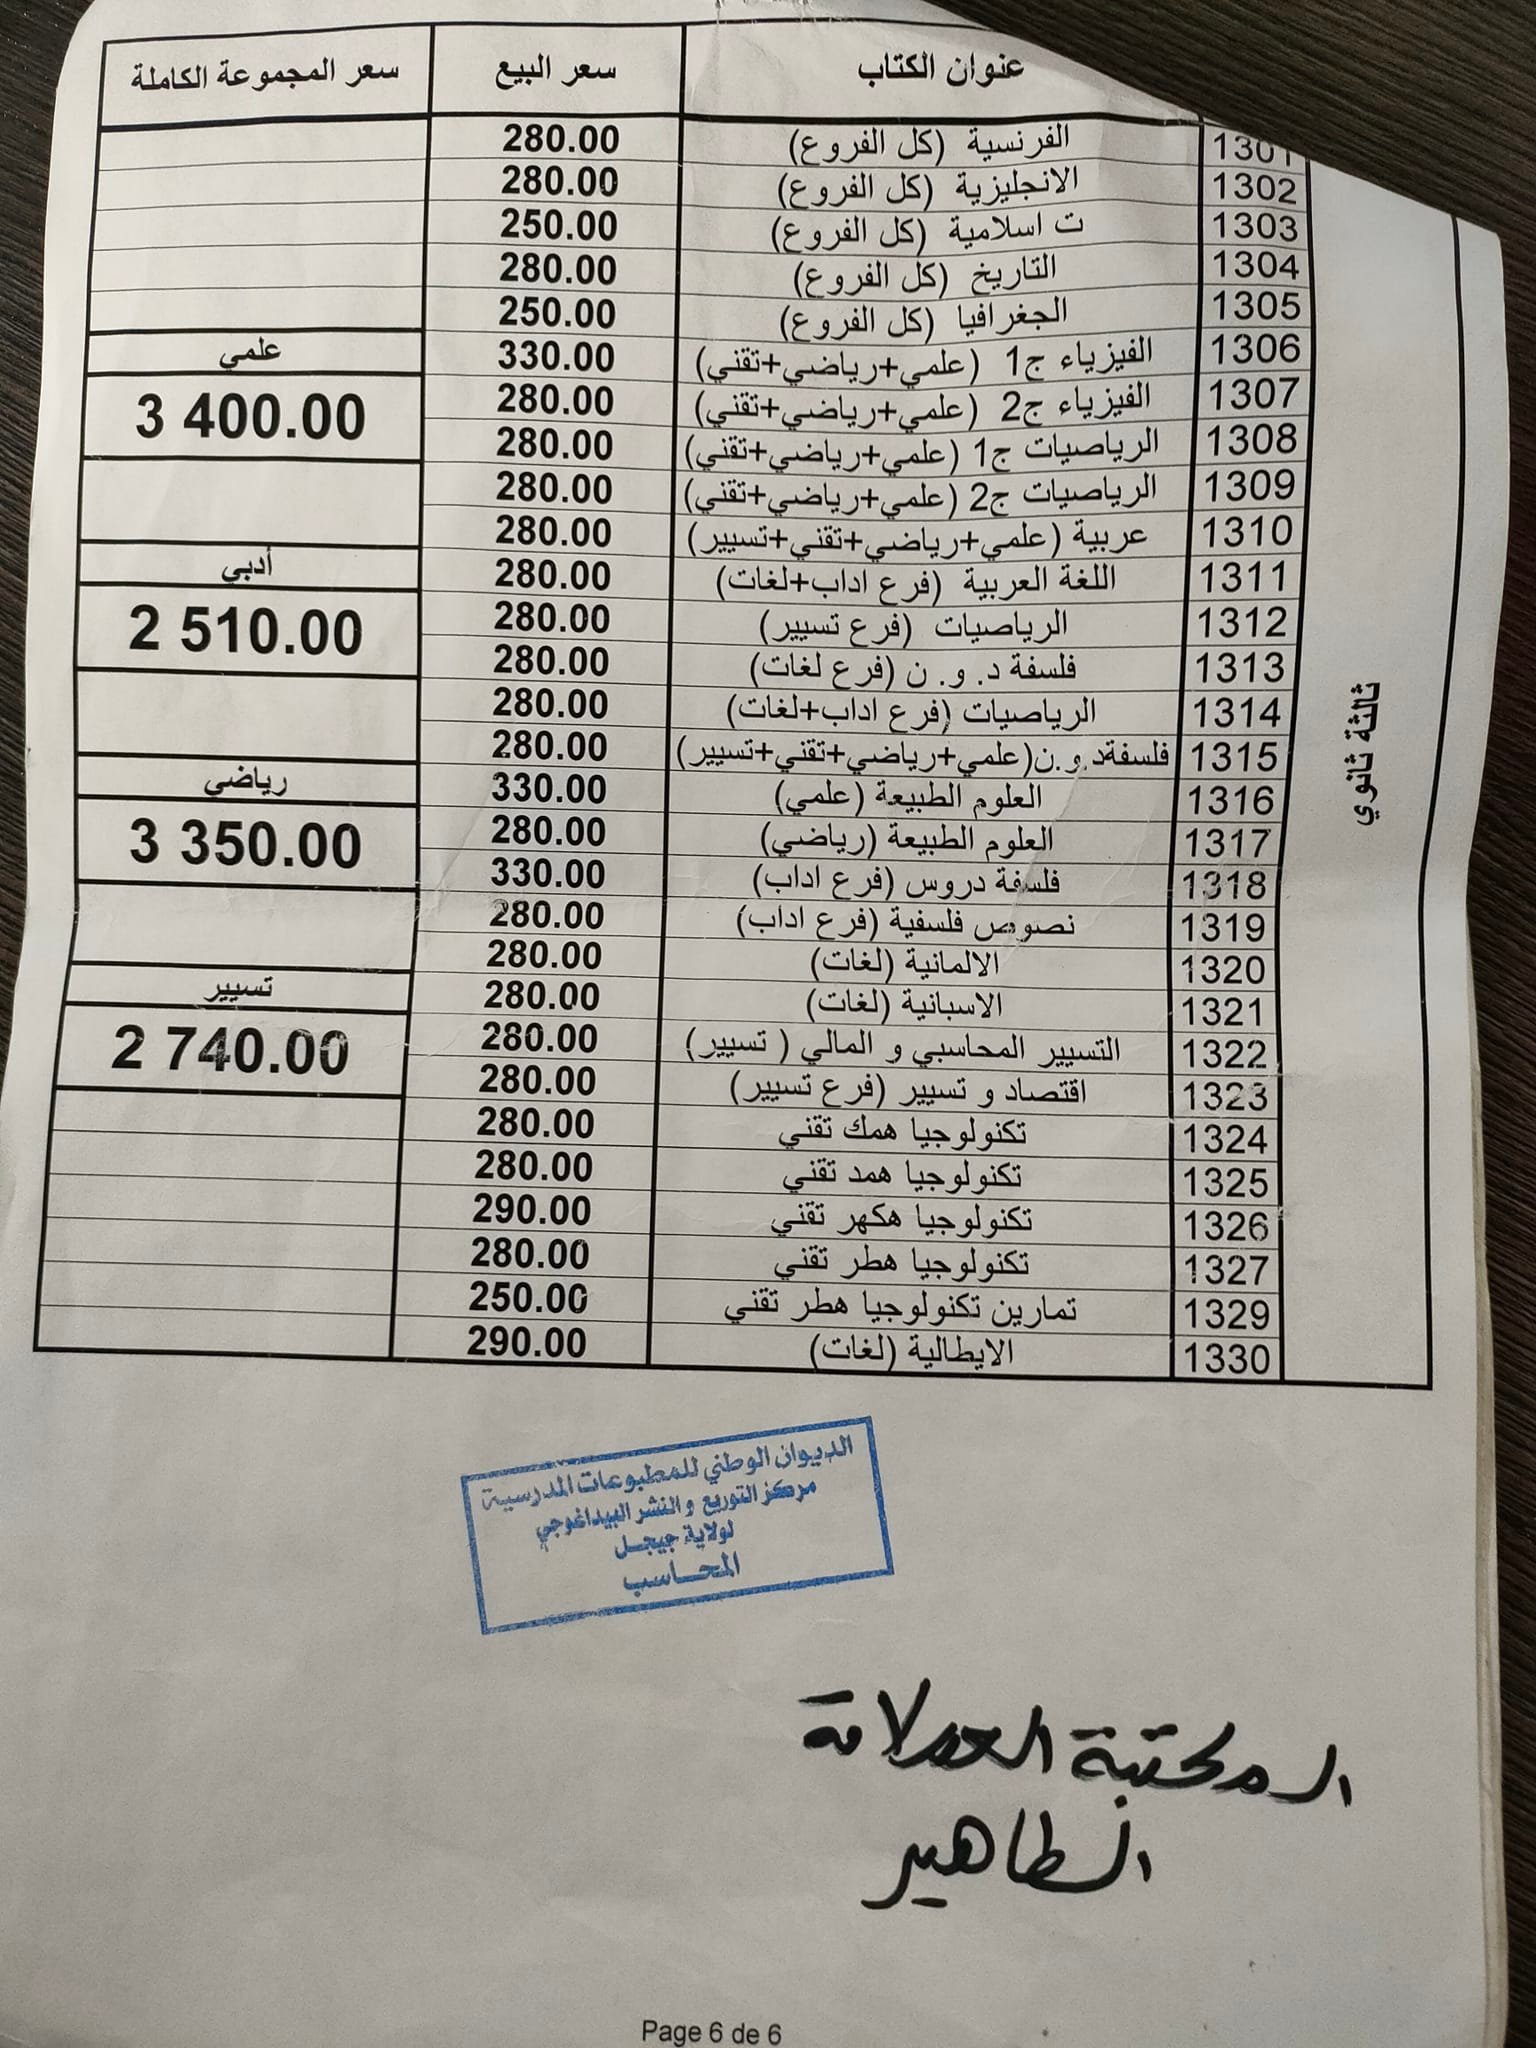 عنوان الكتاب سعر البيع سعر المجموعة الكاملة
ثالثة ثانوي
1301 الفرنسية (كل الفروع) 280.00
1302 الانجليزية (كل الفروع) 280.00
1303 ت اسلامية (كل الفروع) 250.00
1304 التاريخ (كل الفروع) 280.00
1305 الجغرافيا (كل الفروع) 250.00
1306 الفيزياء ج1 (علمي+رياضي+تقني) 330.00 علمي
1307 الفيزياء ج2 (علمي+رياضي+تقني) 280.00 3 400.00
1308 الرياصيات ج1 (علمي+رياضي+تقني) 280.00
1309 الرياصيات ج2 (علمي+رياضي+تقني) 280.00
1310 عربية (علمي+رياضي+تقني+تسيير) 280.00
1311 اللغة العربية (فرع اداب+لغات) 280.00 أدبي
1312 الرياصيات (فرع تسيير) 280.00 2 510.00
1313 فلسفة د. و. ن (فرع لغات) 280.00
1314 الرياصيات (فرع اداب+لغات) 280.00
1315 فلسفةد.و.ن(علمي+رياضي+تقني+تسيير) 280.00
1316 العلوم الطبيعة (علمي) 330.00 رياضي
1317 العلوم الطبيعة (رياضي) 280.00 3 350.00
1318 فلسفة دروس (فرع اداب) 330.00
1319 نصوص فلسفية (فرع اداب) 280.00
1320 الالمانية (لغات) 280.00
1321 الاسبانية (لغات) 280.00 تسيير
1322 التسيير المحاسبي و المالي ( تسيير) 280.00 2 740.00
1323 اقتصاد و تسيير (فرع تسيير) 280.00
1324 تكنولوجيا همك تقني 280.00
1325 تكنولوجيا همد تقني 280.00
1326 تكنولوجيا هكهر تقني 290.00
1327 تكنولوجيا هطر تقني 280.00
1329 تمارين تكنولوجيا هطر تقني 250.00
1330 الايطالية (لغات) 290.00
الديوان الوطني للمطبوعات المدرسية
مركز التوزيع و النشر البيداغوجي
لولاية جيجل
المحاسب
المكتبة العملاقة
الطاهير
Page 6 de 6